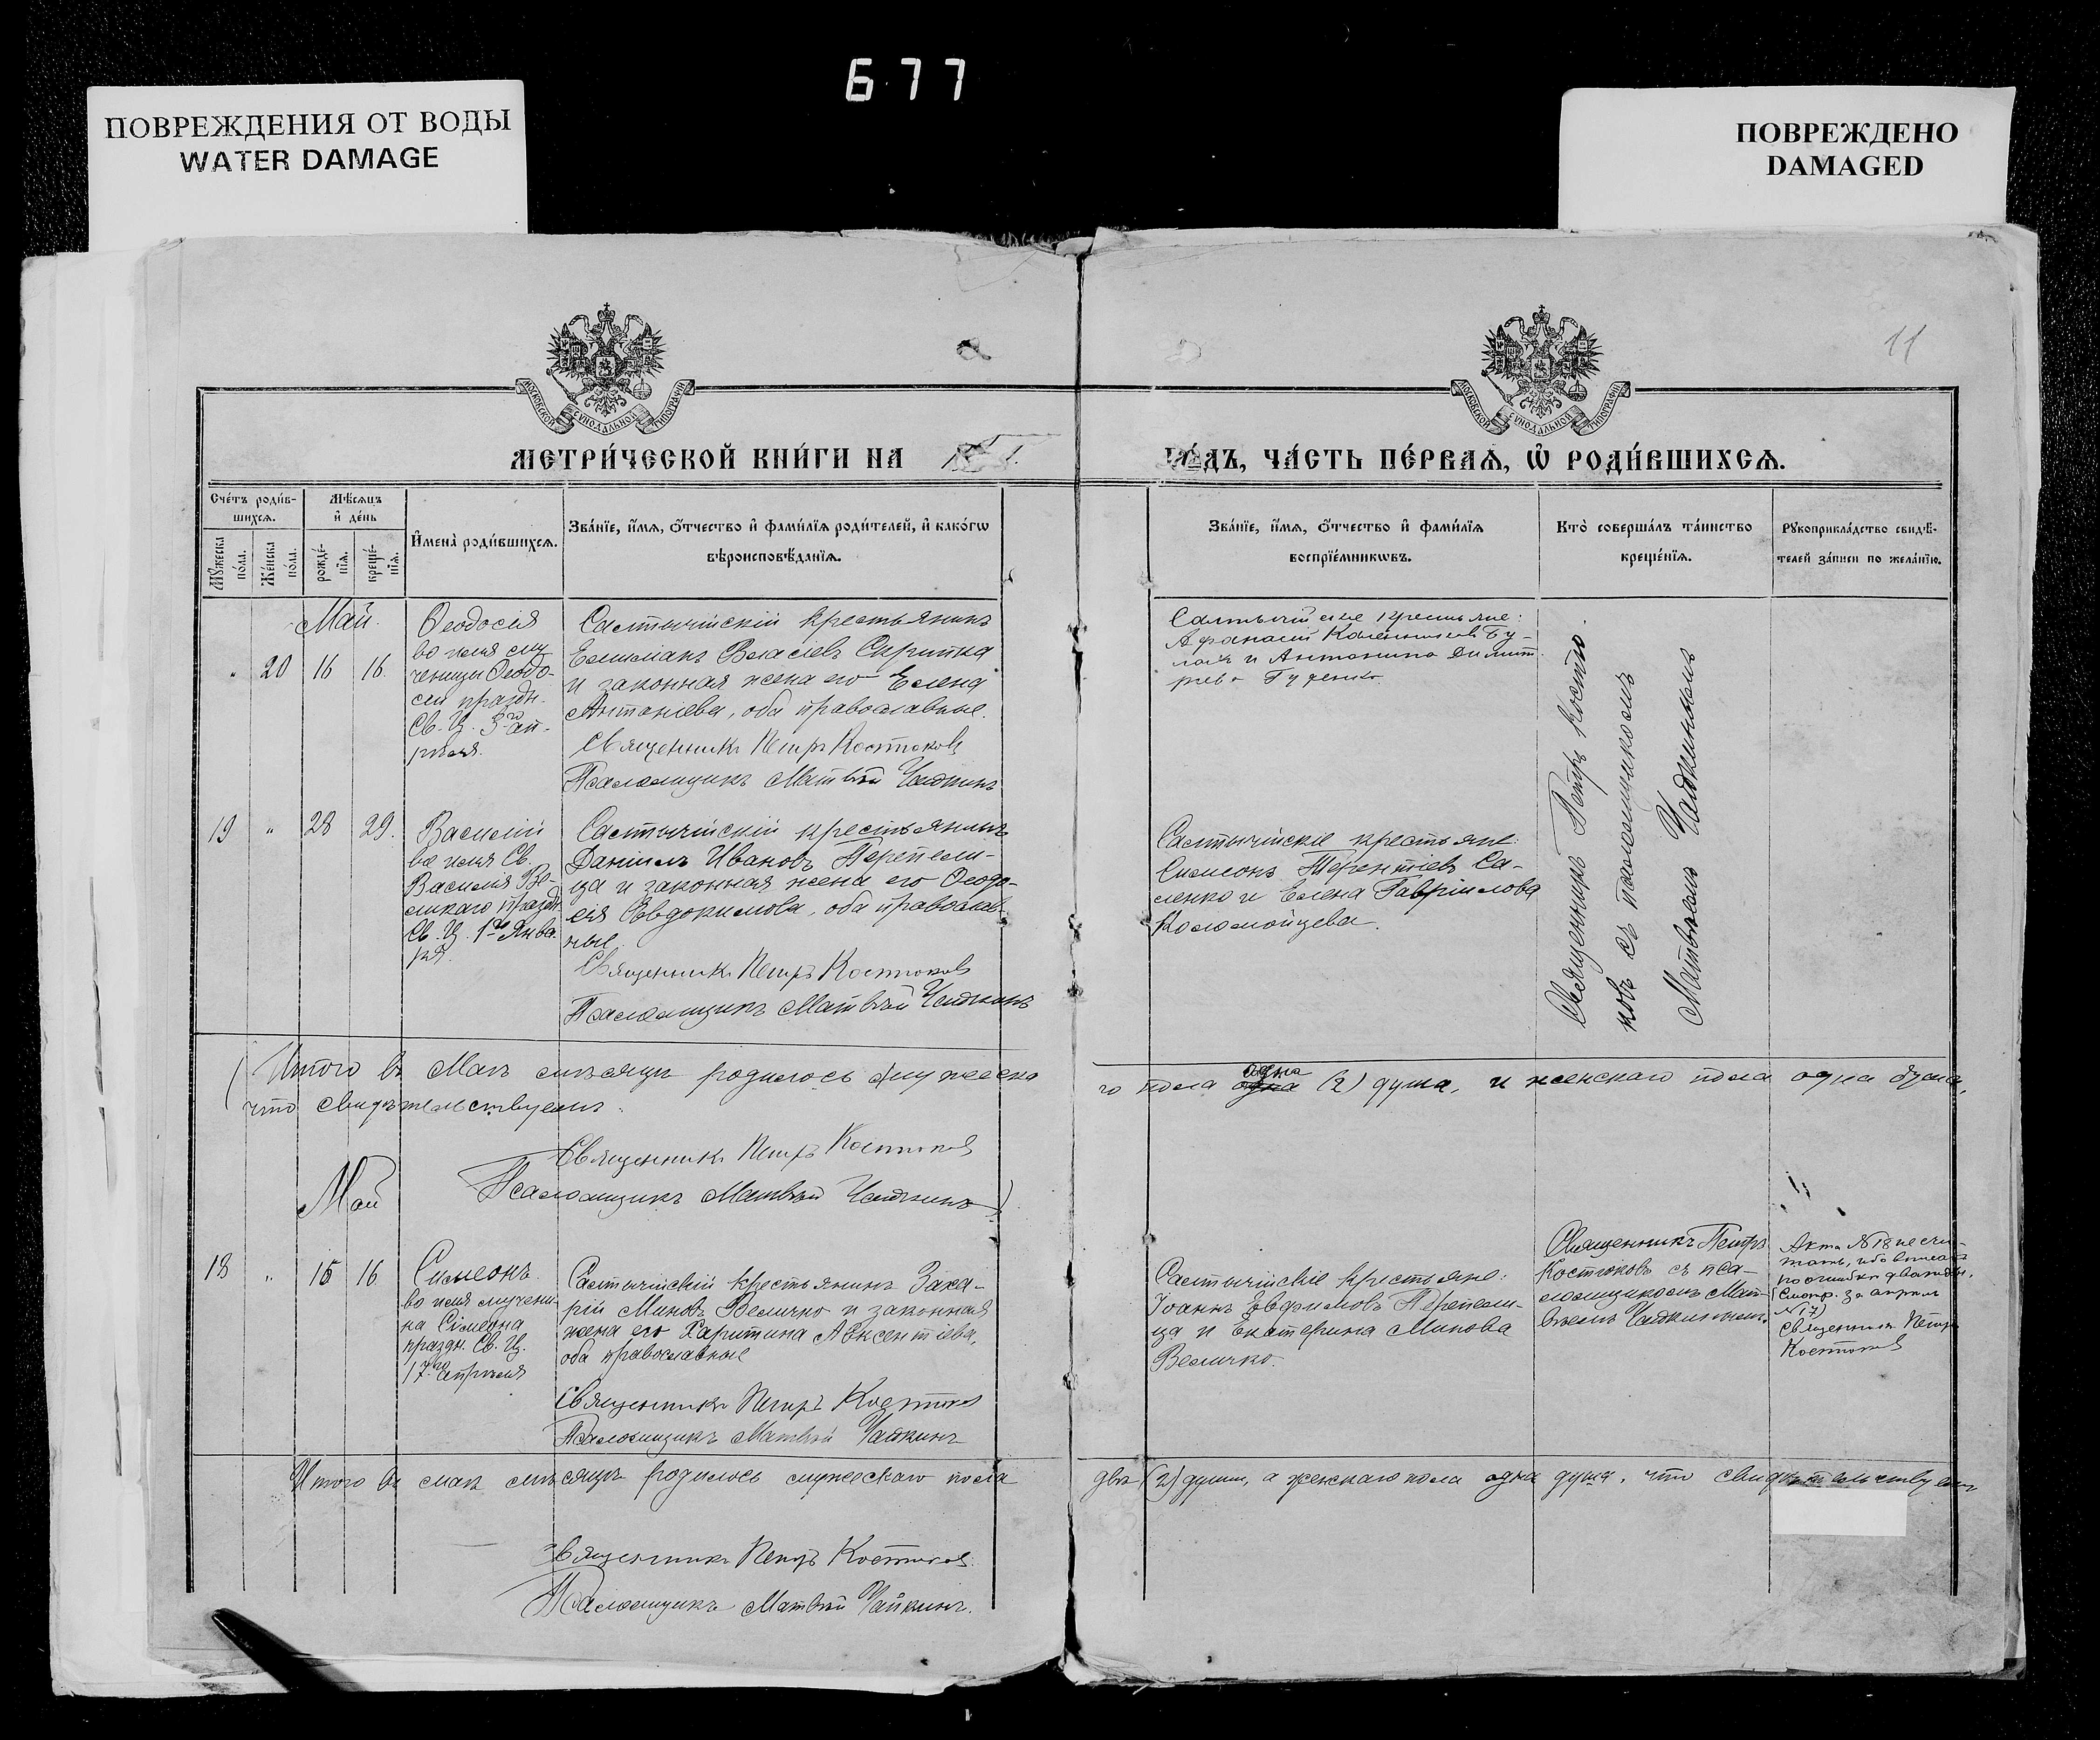 677
ПОВРЕЖДЕНИЯ ОТ ВОДЫ
WATER DAMAGE
ПОВРЕЖДЕНО
DAMAGED
11
МОСКОВСКОЙ СѴНОДАЛЬНОЙ ТИПОГРАФІИ
МОСКОВСКОЙ СѴНОДАЛЬНОЙ ТИПОГРАФІИ
МЕТРИ́ЧЕСКОЙ КНИ́ГИ НА
ГО́ДЪ, ЧА́СТЬ ПЕ́РВАѦ, Ѡ҆ РОДИ́ВШИХСѦ.
Сче́тъ роди́в-
шихсѧ.
Мѣ́сѧцъ
и҆ де́нь
Мꙋ́жеска
по́ла.
Же́нска
по́ла.
рожде́-
нїѧ.
креще́-
нїѧ.
И҆мена̀ роди́вшихсѧ.
Зва́нїе, и҆́мѧ, ѻ҆́тчество и҆ фами́лїѧ роди́телей, и҆ како́гѡ
вѣроисповѣ́данїѧ.
Зва́нїе, и҆́мѧ, ѻ҆́тчество и҆ фами́лїѧ
воспрїе́мникѡвъ.
Кто̀ соверша́лъ та́инство
креще́нїѧ.
Рꙋкоприкла́дство свидѣ́-
телей за́писи по жела́нїю.
Май.
" 20 16 16.
Ѳеодосія
во имя му
ченицы Ѳеодо-
сіи праздн.
Св. Ц. 3го ап-
рѣля.
Салтычійскій крестьянинъ
Емиліанъ Власіевъ Скрипка
и законная жена его Елена
Антоніева, оба православные.
Священникъ Петръ Костюковъ
Псаломщикъ Матвѣй Чайкинъ
Салтычійскіе крестьяне:
и Антонина Димит
ріева
Священникъ Петръ Костю-
ковъ съ псаломщикомъ
Матвѣемъ Чайкинымъ
19 " 28 29.
Василій
во имя Св.
Василія Ве-
ликаго праздн
Св. Ц. 1го Янва
ря.
Салтычійскій крестьянинъ
Даніилъ Ивановъ Перепели-
ца и законная жена его Ѳеодо-
сія Евдокимова, оба православ-
ные.
Священникъ Петръ Костюковъ
Псаломщикъ Матвѣй Чайкинъ
Салтычійскіе крестьяне:
Симеонъ Терентіевъ Са-
ленко и Елена Гавріилова
Коломойцева.
(Итого въ Маѣ мѣсяцѣ родилось мужеска
го пола одна (2) душа, и женскаго пола одна душа,
что свидѣтельствуемъ.
Священникъ Петръ Костюковъ
Псаломщикъ Матвѣй Чайкинъ)
Май
18 " 15 16
Симеонъ
во имя мучени-
ка Сімеона
праздн. Св. Ц.
17го Апрѣля
Салтычійскій крестьянинъ Заха-
рій Миновъ Величко и законная
жена его Харитина Авксентіева,
оба православные
Священникъ Петръ Костюковъ
Псаломщикъ Матвѣй Чайкинъ
Салтычійскіе крестьяне:
Іоаннъ Евфимовъ Перепели-
ца и Екатерина Минова
Величко.
Священникъ Петръ
Костюковъ съ пса-
ломщикомъ Мат-
вѣемъ Чайкинымъ.
Акта №18 не счи-
тать, ибо вписанъ
по ошибкѣ дважды.
(Смотр. за апрель
№17)
Священникъ Петръ
Костюковъ
Итого въ маѣ мѣсяцѣ родилось мужескаго пола
двѣ (2) души, а женскаго пола одна душа, что свидѣтельствуемъ
Священникъ Петръ Костюковъ.
Псаломщикъ Матвѣй Чайкинъ.